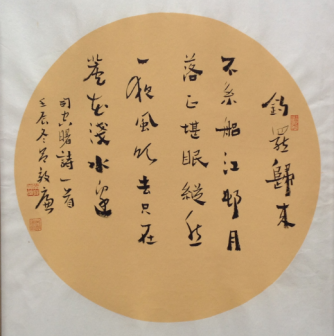 釣罷歸來
不系船江邨月
落正堪眠縱然
一夜風吹去只在
蘆花淺水邊
司空曙詩一首
壬辰冬敦廉